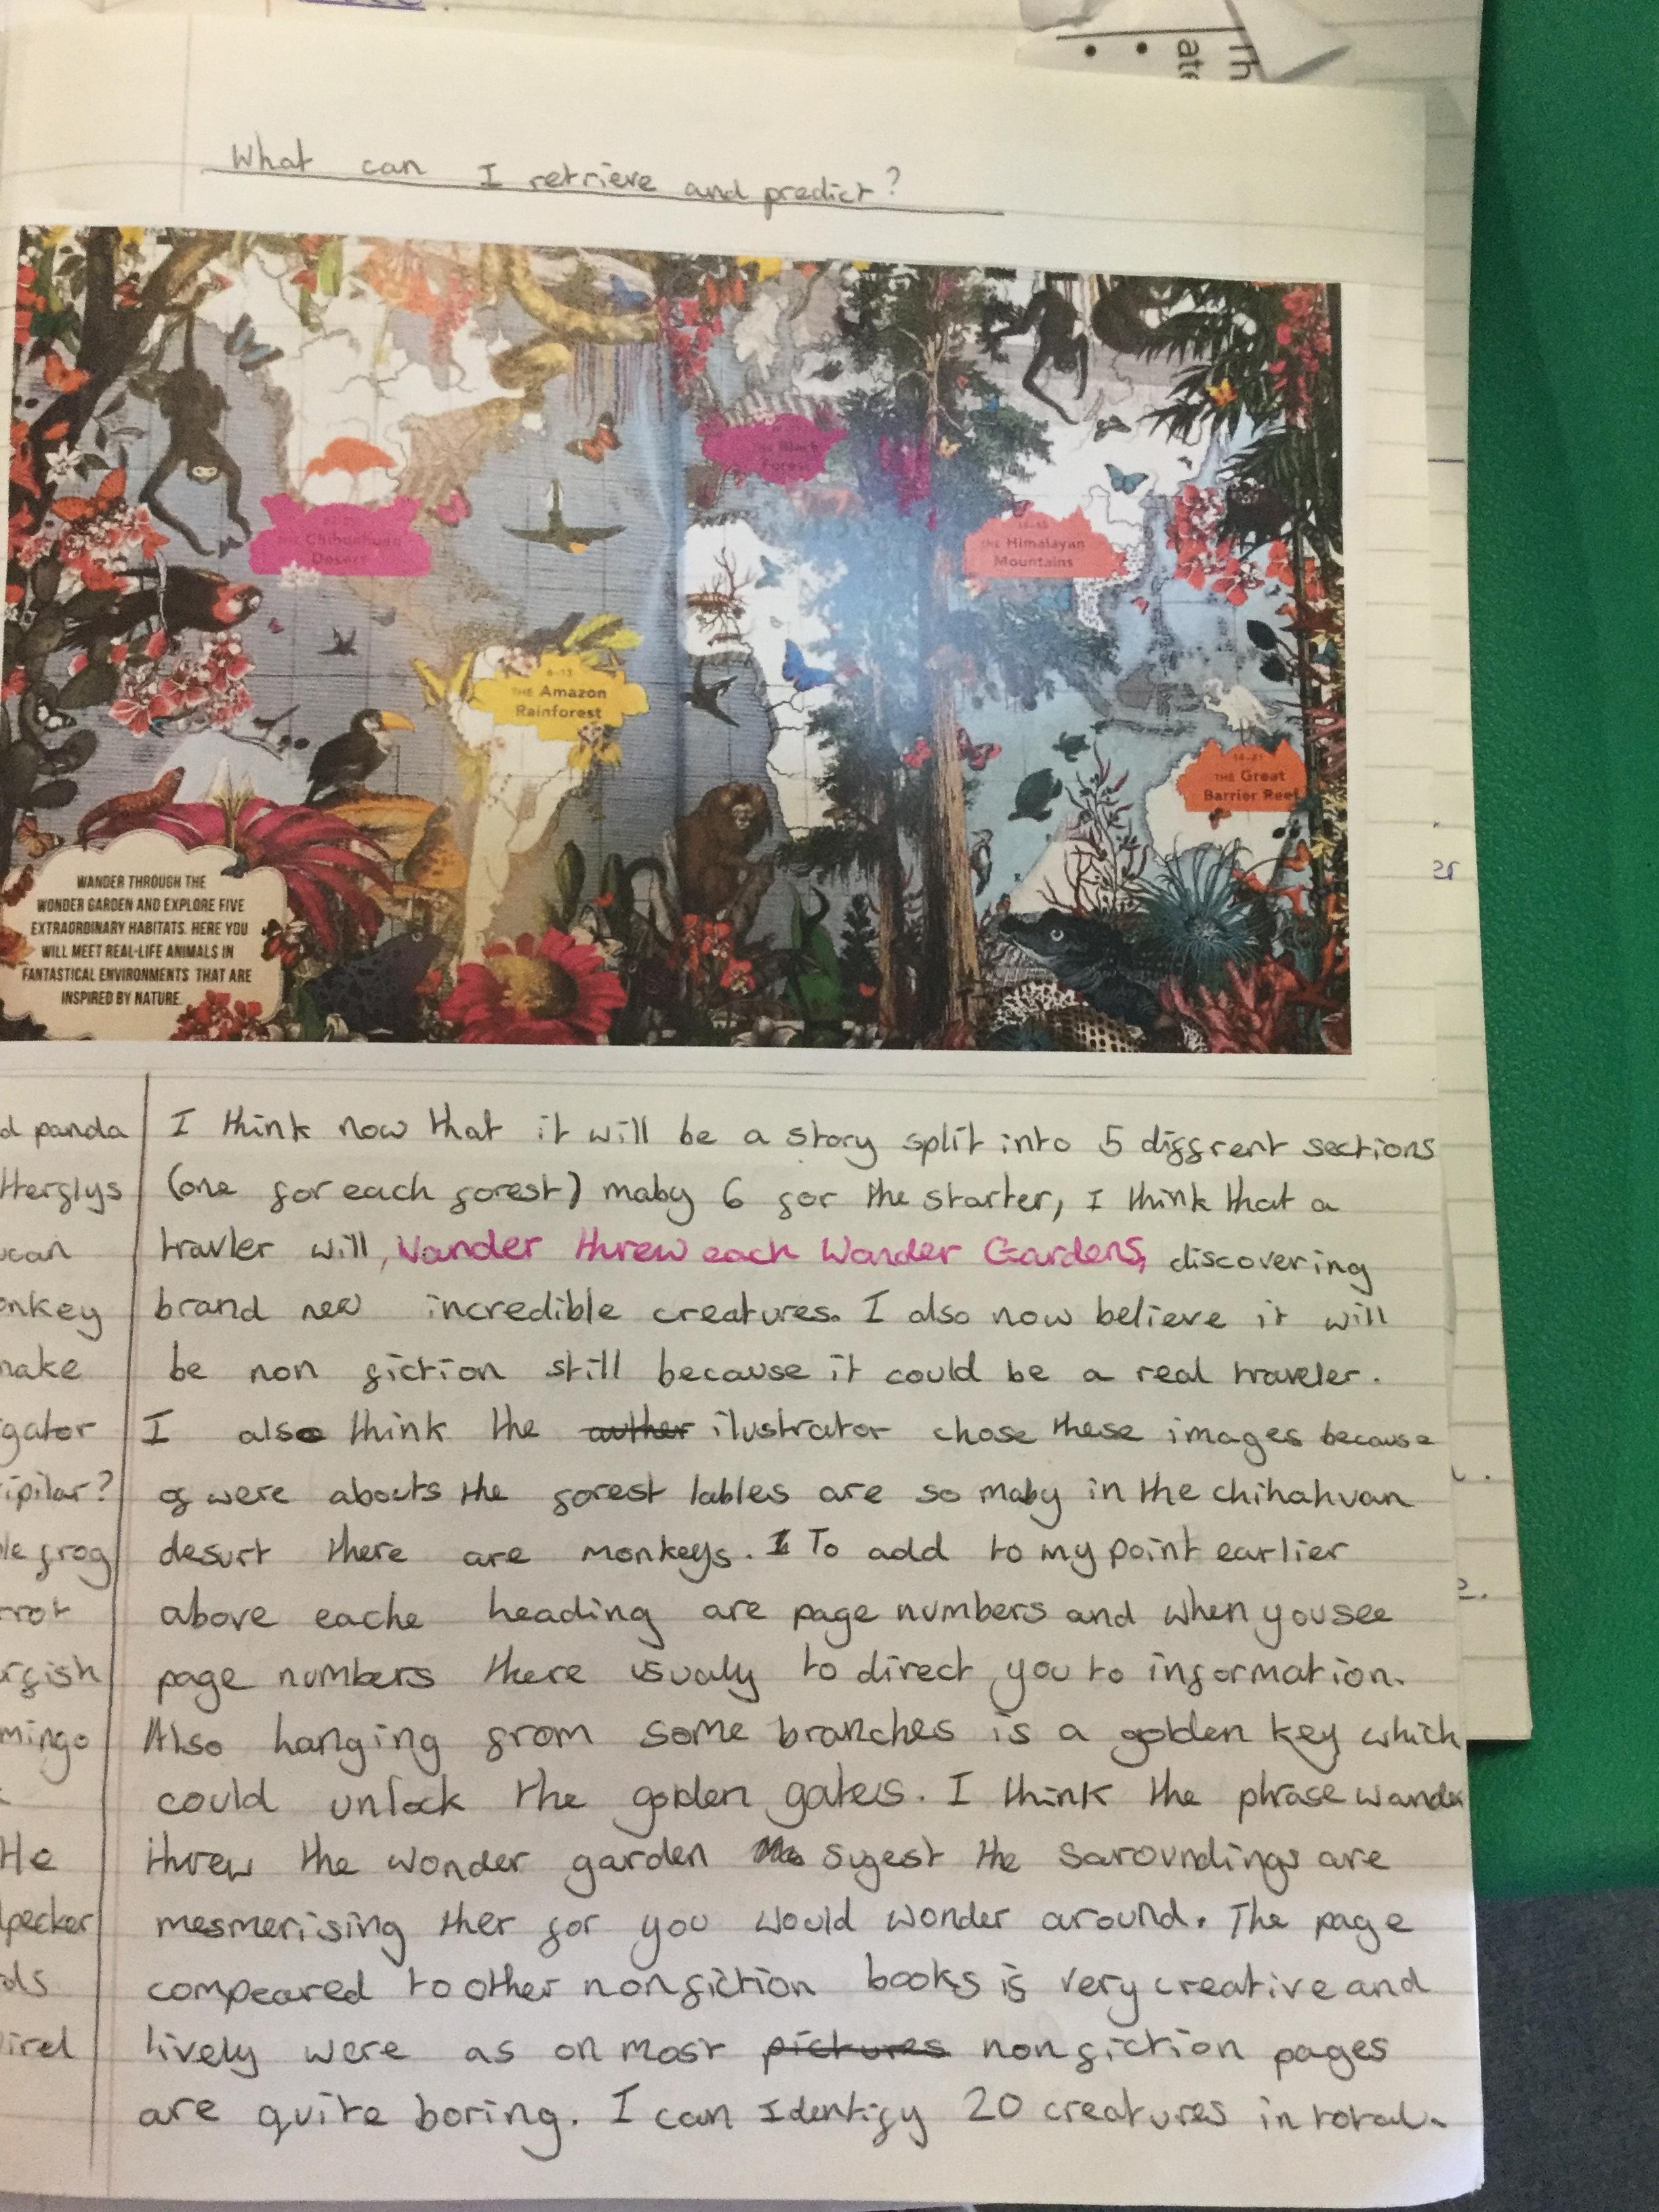 Th
ate
What can I retrieve and predict?
THE Chihuahuan
Desert
THE Black
Forest
THE Himalayan
Mountains
6-13
THE Amazon
Rainforest
THE Great
Barrier Reef
WANDER THROUGH THE
WONDER GARDEN AND EXPLORE FIVE
EXTRAORDINARY HABITATS. HERE YOU
WILL MEET REAL-LIFE ANIMALS IN
FANTASTICAL ENVIRONMENTS THAT ARE
INSPIRED BY NATURE.
d panda
tterflys
ucan
onkey
nake
igator
ripilar?
le frog
rrot
rfish
mingo
He
lpecker
ds
irel
I think now that it will be a story split into 5 diffrent sections
(one for each forest) maby 6 for the starter, I think that a
travler will, Wander threw each Wonder Gardens, discovering
brand new incredible creatures. I also now believe it will
be non fiction still because it could be a real traveler.
I also think the auther ilustrator chose these images because
of were abouts the forest lables are so maby in the chihahvan
desurt there are monkeys. I To add to my point earlier
above eache heading are page numbers and when you see
page numbers there usualy to direct you to information.
Also hanging from some branches is a golden key which
could unlock the golden gates. I think the phrase wander
threw the wonder garden sugest the saroundings are
mesmerising ther for you would wonder around. The page
compeared to other nonfiction books is very creative and
lively were as on most pictures non fiction pages
are quite boring. I can Identify 20 creatures in total.